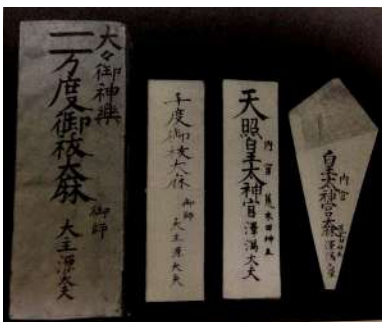 大々御神楽
二万度御祓大麻
御師
大主源大夫
千度御祓大麻
御師
大主源大夫
天照皇太神宮
内宮
荒木田神主
澤瀉大夫
内宮
皇太神宮大麻